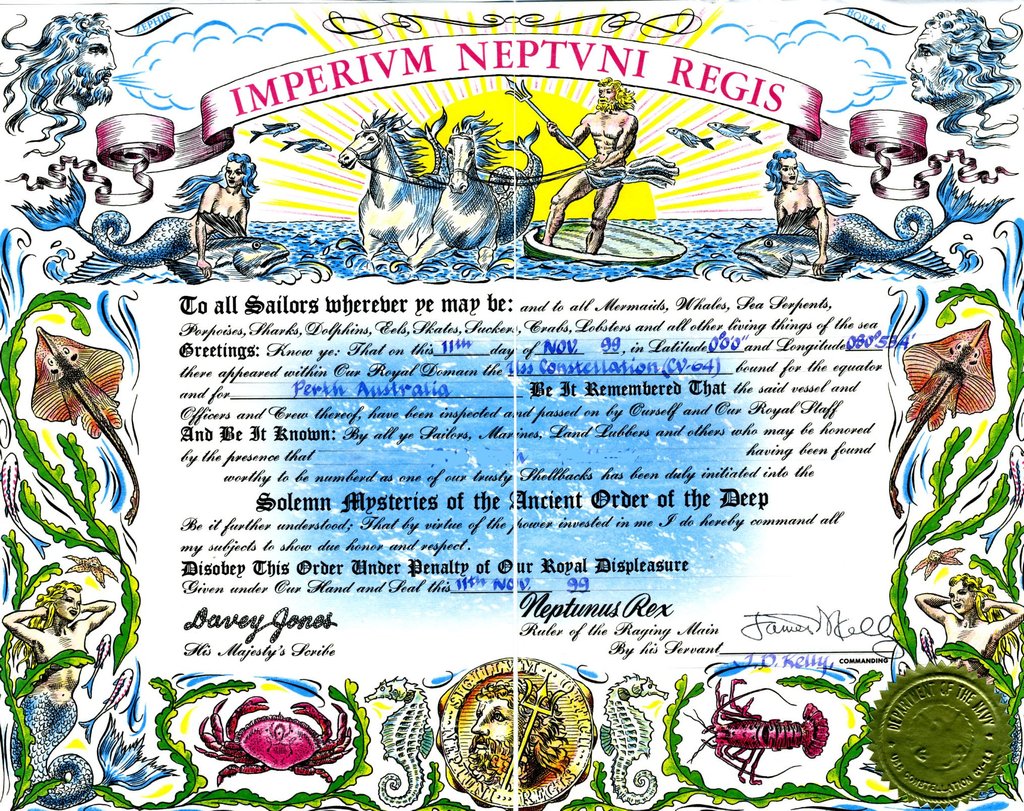 ZEPHIR
BOREAS
IMPERIVM NEPTVNI REGIS
To all Sailors wherever ye may be: and to all Mermaids, Whales, Sea Serpents,
Porpoises, Sharks, Dolphins, Eels, Skates, Suckers, Crabs, Lobsters and all other living things of the sea
Greetings: Know ye: That on this 11th day of NOV. 99, in Latitude 0°0'0" and Longitude
there appeared within Our Royal Domain the USS Constellation (CV-64) bound for the equator
and for Perth Australia Be It Remembered That the said vessel and
Officers and Crew thereof, have been inspected and passed on by Ourself and Our Royal Staff
And Be It Known: By all ye Sailors, Marines, Land Lubbers and others who may be honored
by the presence that having been found
worthy to be numberd as one of our trusty Shellbacks has been duly initiated into the
Solemn Mysteries of the Ancient Order of the Deep
Be it further understood; That by virtue of the power invested in me I do hereby command all
my subjects to show due honor and respect.
Disobey This Order Under Penalty of Our Royal Displeasure
Given under Our Hand and Seal this 11th NOV. 99
Davey Jones
His Majesty's Scribe
Neptunus Rex
Ruler of the Raging Main
By his Servant James D Kelly
J.D. Kelly, COMMANDING
DEPARTMENT OF THE NAVY
USS CONSTELLATION CV-64